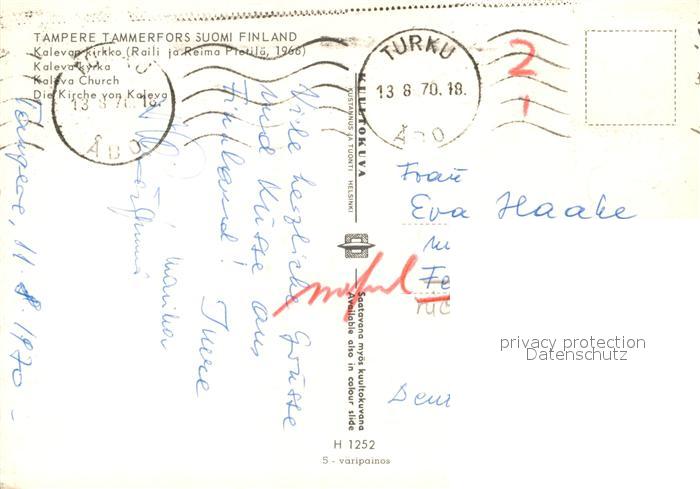 TAMPERE TAMMERFORS SUOMI FINLAND
Kalevan kirkko (Raili ja Reima Pietilä, 1966)
Kaleva kyrka
Kaleva Church
Die Kirche von Kaleva
13 8 70.18.
ÅBO
TURKU
13 8 70.18.
ÅBO
2
1
Tampere, 11.8.1970 -
Viele herzliche Grüsse
und Küsse aus
Finnland! Inure
Marika
KUULTOKUVA
KUSTANNUS JA TUONTI HELSINKI
Saatavana myös kuultokuvana
Available also in colour slide
Frau
Eva Haake
Fe
privacy protection
Datenschutz
H 1252
5 - varipainos